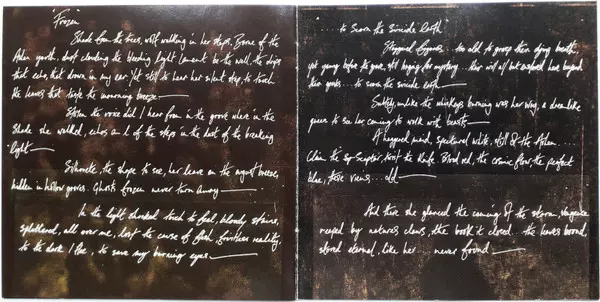 Frozen
Shade from the trees, wolf walking in her steps, Borne of the
Ashen youth, dusk clouding the bleeding light lament be the wall, the drips
that echo, that drown in my ear. Yet still to hear her silent step, to touch
the leaves that taste the mourning breeze
Stolen the voice did I hear from in the grove where in the
Shade she walked, echos an I of the steps in the dusk of the breaking
light
Silhouette, the shape to see, her leave on the august breeze,
hidden in hollow groves. Ghosts frozen never turn away
In the light shrouded touch to feel, bloody stains,
splattered, all over me, lost the cause of flesh, fruitless reality,
to the dark I flee, to save my burning eyes
...to scorn the suicide birth
Staggered figures... too old to grasp their dying breath,
yet young before the gone. All longing for mystery... their will but
their youth... to scorn the suicide birth
unlike the whiskeys burning was her way, a dreamlike
queen to so her coming to walk with beasts
A haggered mind, spectured white, still of the Ashen...
Claim the Sceptor, the Knife. Blood red, the cosmic flow the perfect
blue, these veins...old
And there she glanced the coming of the storm, vengeance
reaped by natures claws, the book it closed. the leaves bound,
stored eternal, like her... never found